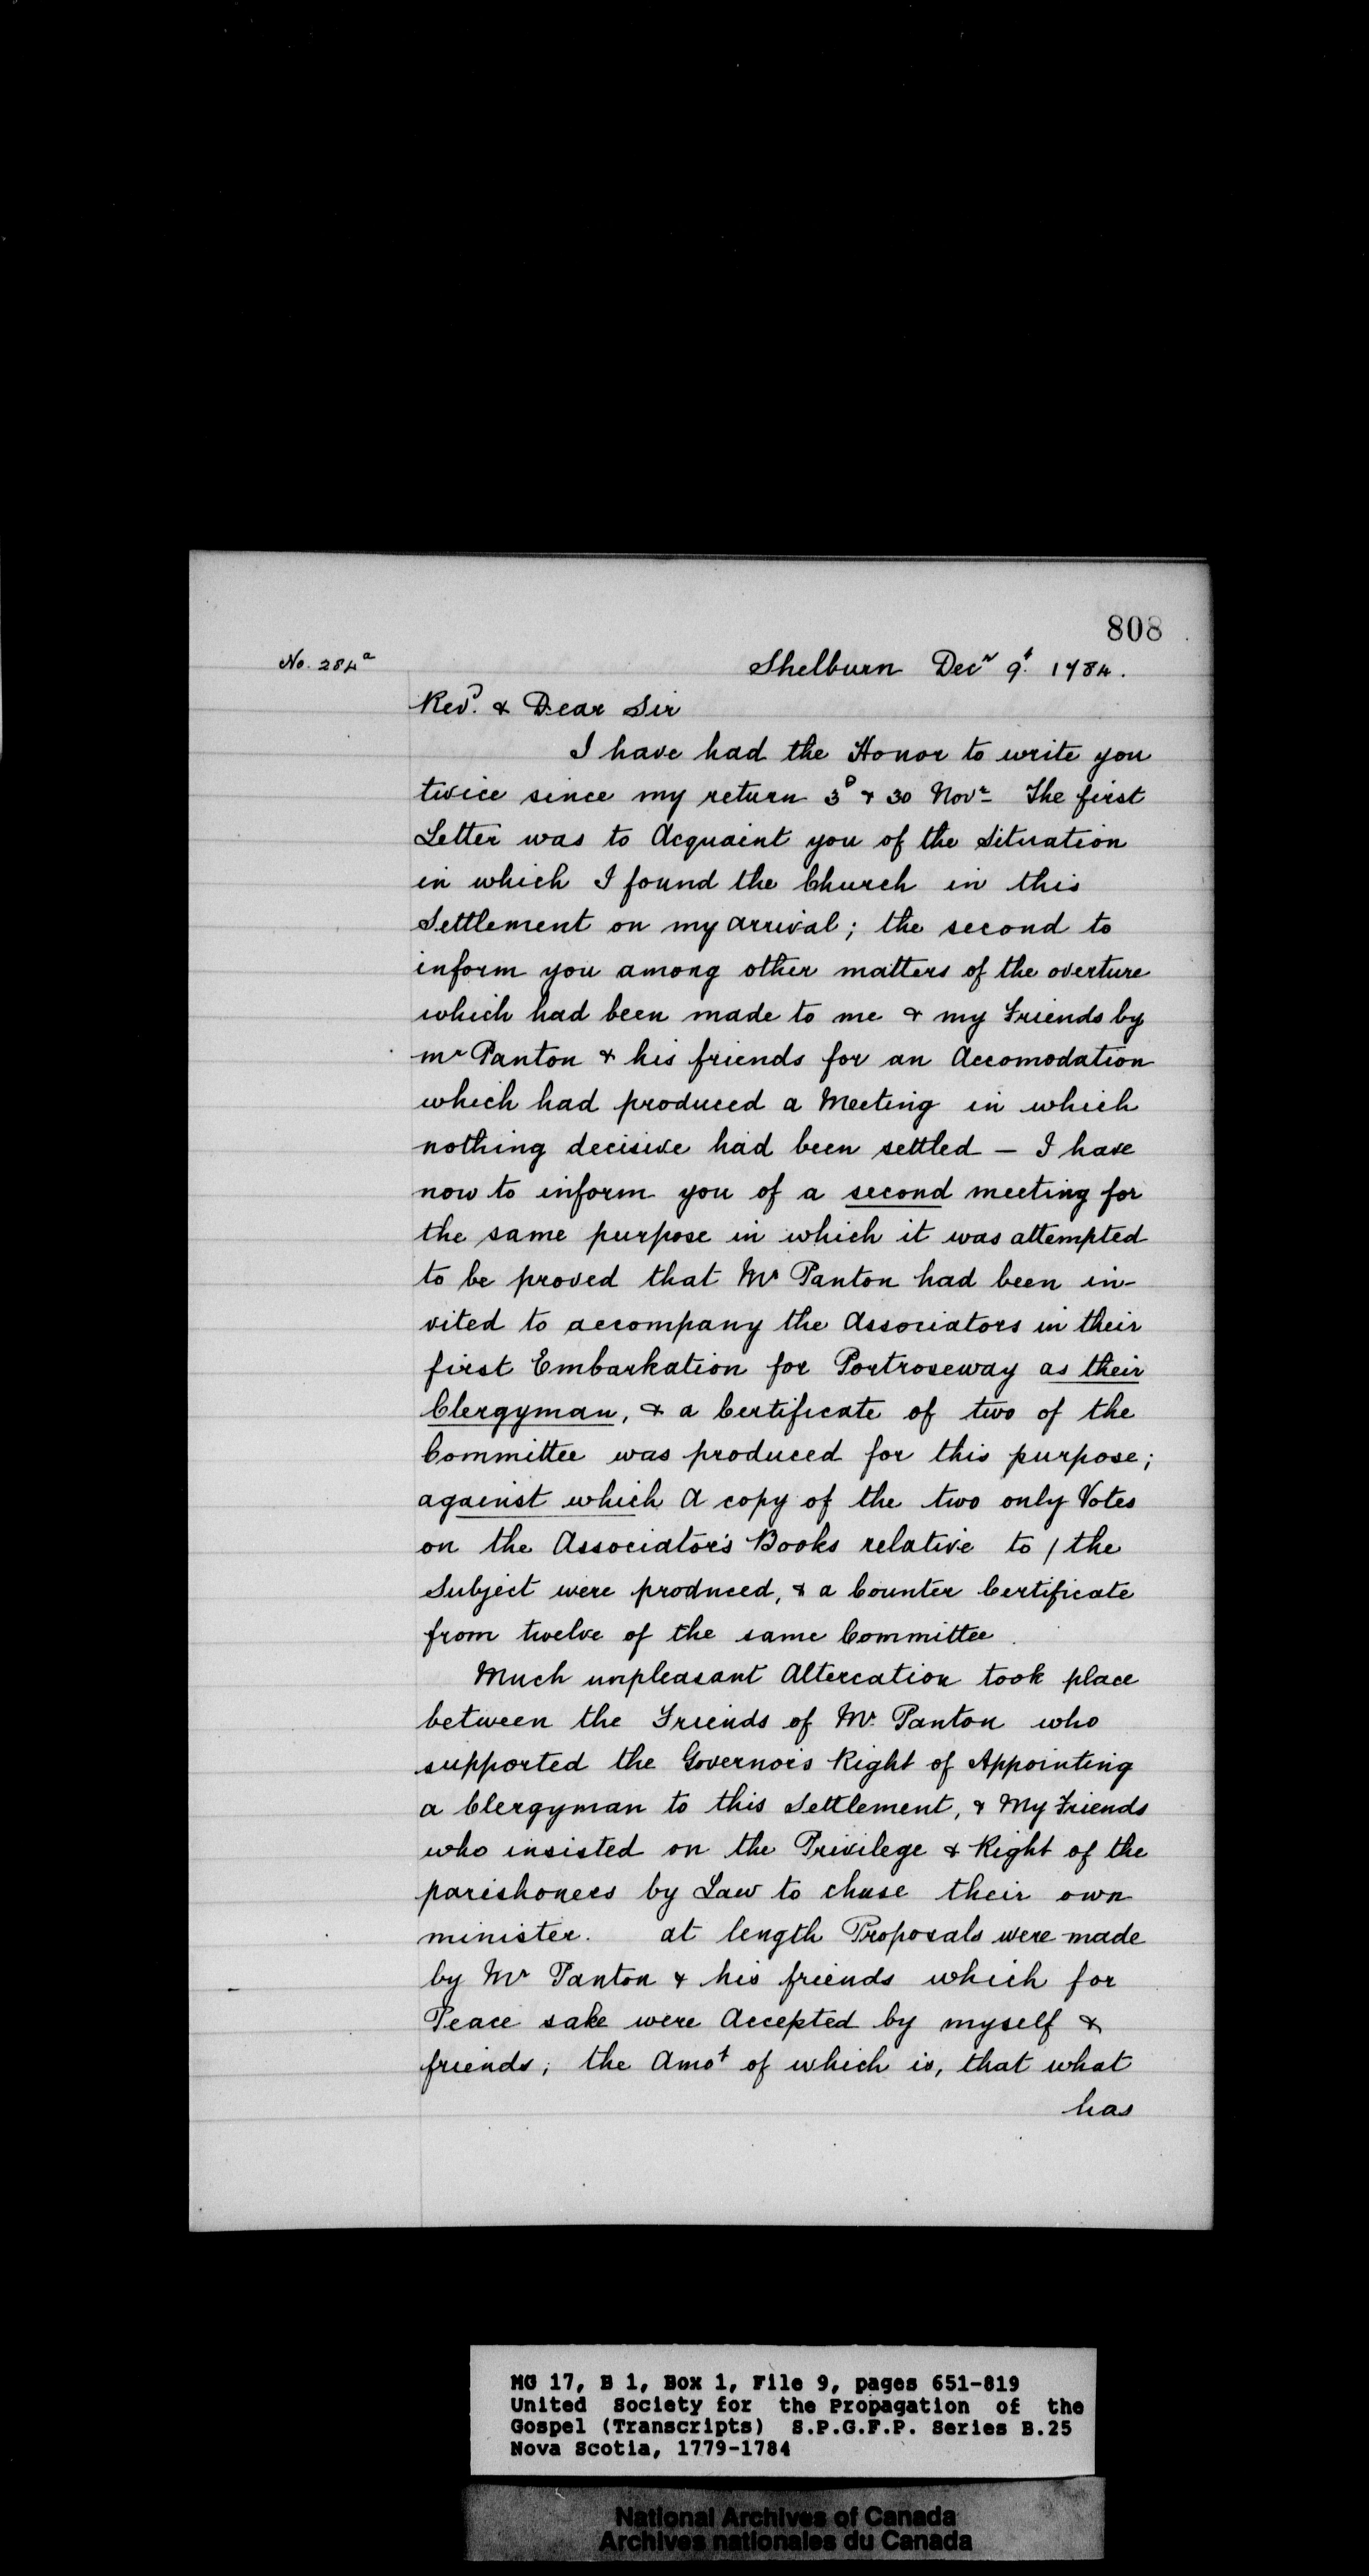 808
No. 284a
Shelburn Decr 9t. 1784.
Revd. & Dear Sir
I have had the Honor to write you
twice since my return 3D & 30 Novr The first
Letter was to Acquaint you of the Situation
in which I found the Church in this
Settlement on my arrival; the second to
inform you among other matters of the overture
which had been made to me & my Friends by
mr Panton & his friends for an Accomodation
which had produced a Meeting in which
nothing decisive had been settled – I have
now to inform you of a second meeting for
the same purpose in which it was attempted
to be proved that Mr Panton had been in-
vited to accompany the Associators in their
first Embarkation for Portroseway as their
Clergyman, & a Certificate of two of the
Committee was produced for this purpose;
against which A copy of the two only Votes
on the Associator's Books relative to / the
Subject were produced, & a Counter Certificate
from twelve of the same Committee.
Much unpleasant Altercation took place
between the Friends of Mr. Panton who
supported the Governor's Right of Appointing
a Clergyman to this Settlement, & My Friends
who insisted on the Privilege & Right of the
parishoners by Law to chuse their own
minister. at length Proposals were made
by Mr Panton & his friends which for
Peace sake were Accepted by myself &
friends; the Amot of which is, that what
has
MG 17, B 1, Box 1, File 9, pages 651-819
United Society for the Propagation of the
Gospel (Transcripts) S.P.G.F.P. Series B.25
Nova Scotia, 1779-1784
National Archives of Canada
Archives nationales du Canada